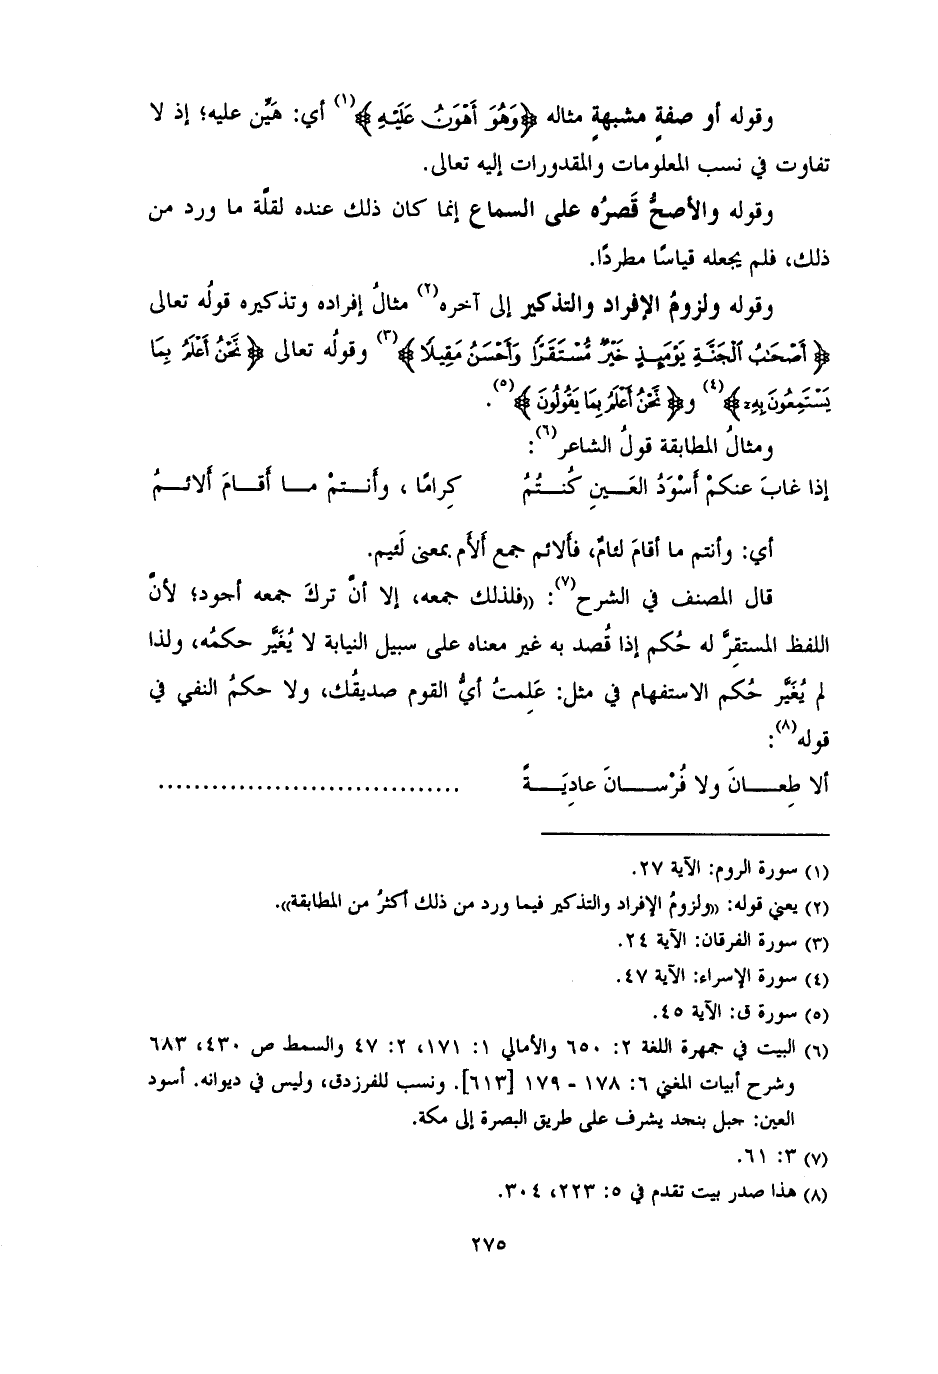 وقوله أو صفةٍ مشبهةٍ مثاله ﴿وَهُوَ أَهْوَنُ عَلَيْهِ﴾(١) أي: هَيِّن عليه؛ إذ لا
تفاوت في نسب المعلومات والمقدورات إليه تعالى.
وقوله والأصحُّ قَصرُه على السماع إنما كان ذلك عنده لقلَّة ما ورد من
ذلك، فلم يجعله قياسًا مطردًا.
وقوله ولزومُ الإفراد والتذكير إلى آخره(٢) مثالُ إفراده وتذكيره قولُه تعالى
﴿أَصْحَابُ الْجَنَّةِ يَوْمَئِذٍ خَيْرٌ مُّسْتَقَرًّا وَأَحْسَنُ مَقِيلًا﴾(٣) وقولُه تعالى ﴿نَّحْنُ أَعْلَمُ بِمَا
يَسْتَمِعُونَ بِهِ﴾(٤) و﴿نَّحْنُ أَعْلَمُ بِمَا يَقُولُونَ﴾(٥).
ومثالُ المطابقة قولُ الشاعر(٦):
إذا غابَ عنكمْ أَسْوَدُ العَـــينِ كُنـــتُمُ كِرامًا ، وأَنـــتمْ مـــا أَقـــامَ أَلائـــمُ
أي: وأنتم ما أقامَ لئامٌ، فأَلائم جمع أَلأَم بمعنى لَئيم.
قال المصنف في الشرح(٧): «فلذلك جمعه، إلا أنَّ تركَ جمعه أجود؛ لأنَّ
اللفظ المستقِرَّ له حُكم إذا قُصد به غير معناه على سبيل النيابة لا يُغَيَّر حكمُه، ولذا
لم يُغَيَّر حُكم الاستفهام في مثل: عَلِمتُ أيُّ القوم صديقُك، ولا حكمُ النفي في
قوله(٨):
ألا طِعـــانَ ولا فُرْســـانَ عادِيَـــةً ..................................
(١) سورة الروم: الآية ٢٧.
(٢) يعني قوله: «ولزومُ الإفراد والتذكير فيما ورد من ذلك أكثرُ من المطابقة».
(٣) سورة الفرقان: الآية ٢٤.
(٤) سورة الإسراء: الآية ٤٧.
(٥) سورة ق: الآية ٤٥.
(٦) البيت في جمهرة اللغة ٢: ٦٥٠ والأمالي ١: ١٧١، ٢: ٤٧ والسمط ص ٤٣٠، ٦٨٣
وشرح أبيات المغني ٦: ١٧٨ - ١٧٩ [٦١٣]. ونسب للفرزدق، وليس في ديوانه. أسود
العين: جبل بنجد يشرف على طريق البصرة إلى مكة.
(٧) ٣: ٦١.
(٨) هذا صدر بيت تقدم في ٥: ٢٢٣، ٣٠٤.
٢٧٥